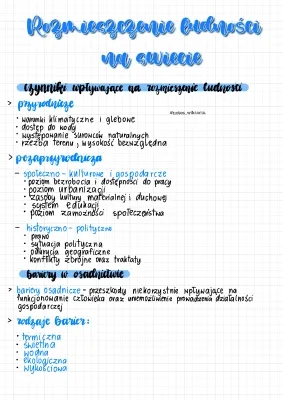 Rozmieszczenie ludności
na świecie
czynniki wpływające na rozmieszenie ludności
> przyrodnicze
• warunki klimatyczne i glebowe
• dostęp do wody
• występowanie surowców naturalnych
• rzeźba terenu, wysokość bezwzględna
> pozaprzyrodnicza
- społeczno-kulturowe i gospodarcze
• poziom bezrobocia i dostępności do pracy
• poziom urbanizacji
• zasoby kultury materialnej i duchowej
• system edukacji
• poziom zamożności społeczeństwa
- historyczno-polityczne
• prawo
• sytuacja polityczna
• odkrycia geograficzne
• konflikty zbrojne oraz traktaty
bariery w osadnictwie
> bariery osadnicze - przeszkody niekorzystnie wpływające na
funkcjonowanie człowieka oraz uniemożliwienie prowadzenia działalności
gospodarczej
> rodzaje barier:
• termiczna
• świetlna
• wodna
• ekologiczna
• wysokościowa